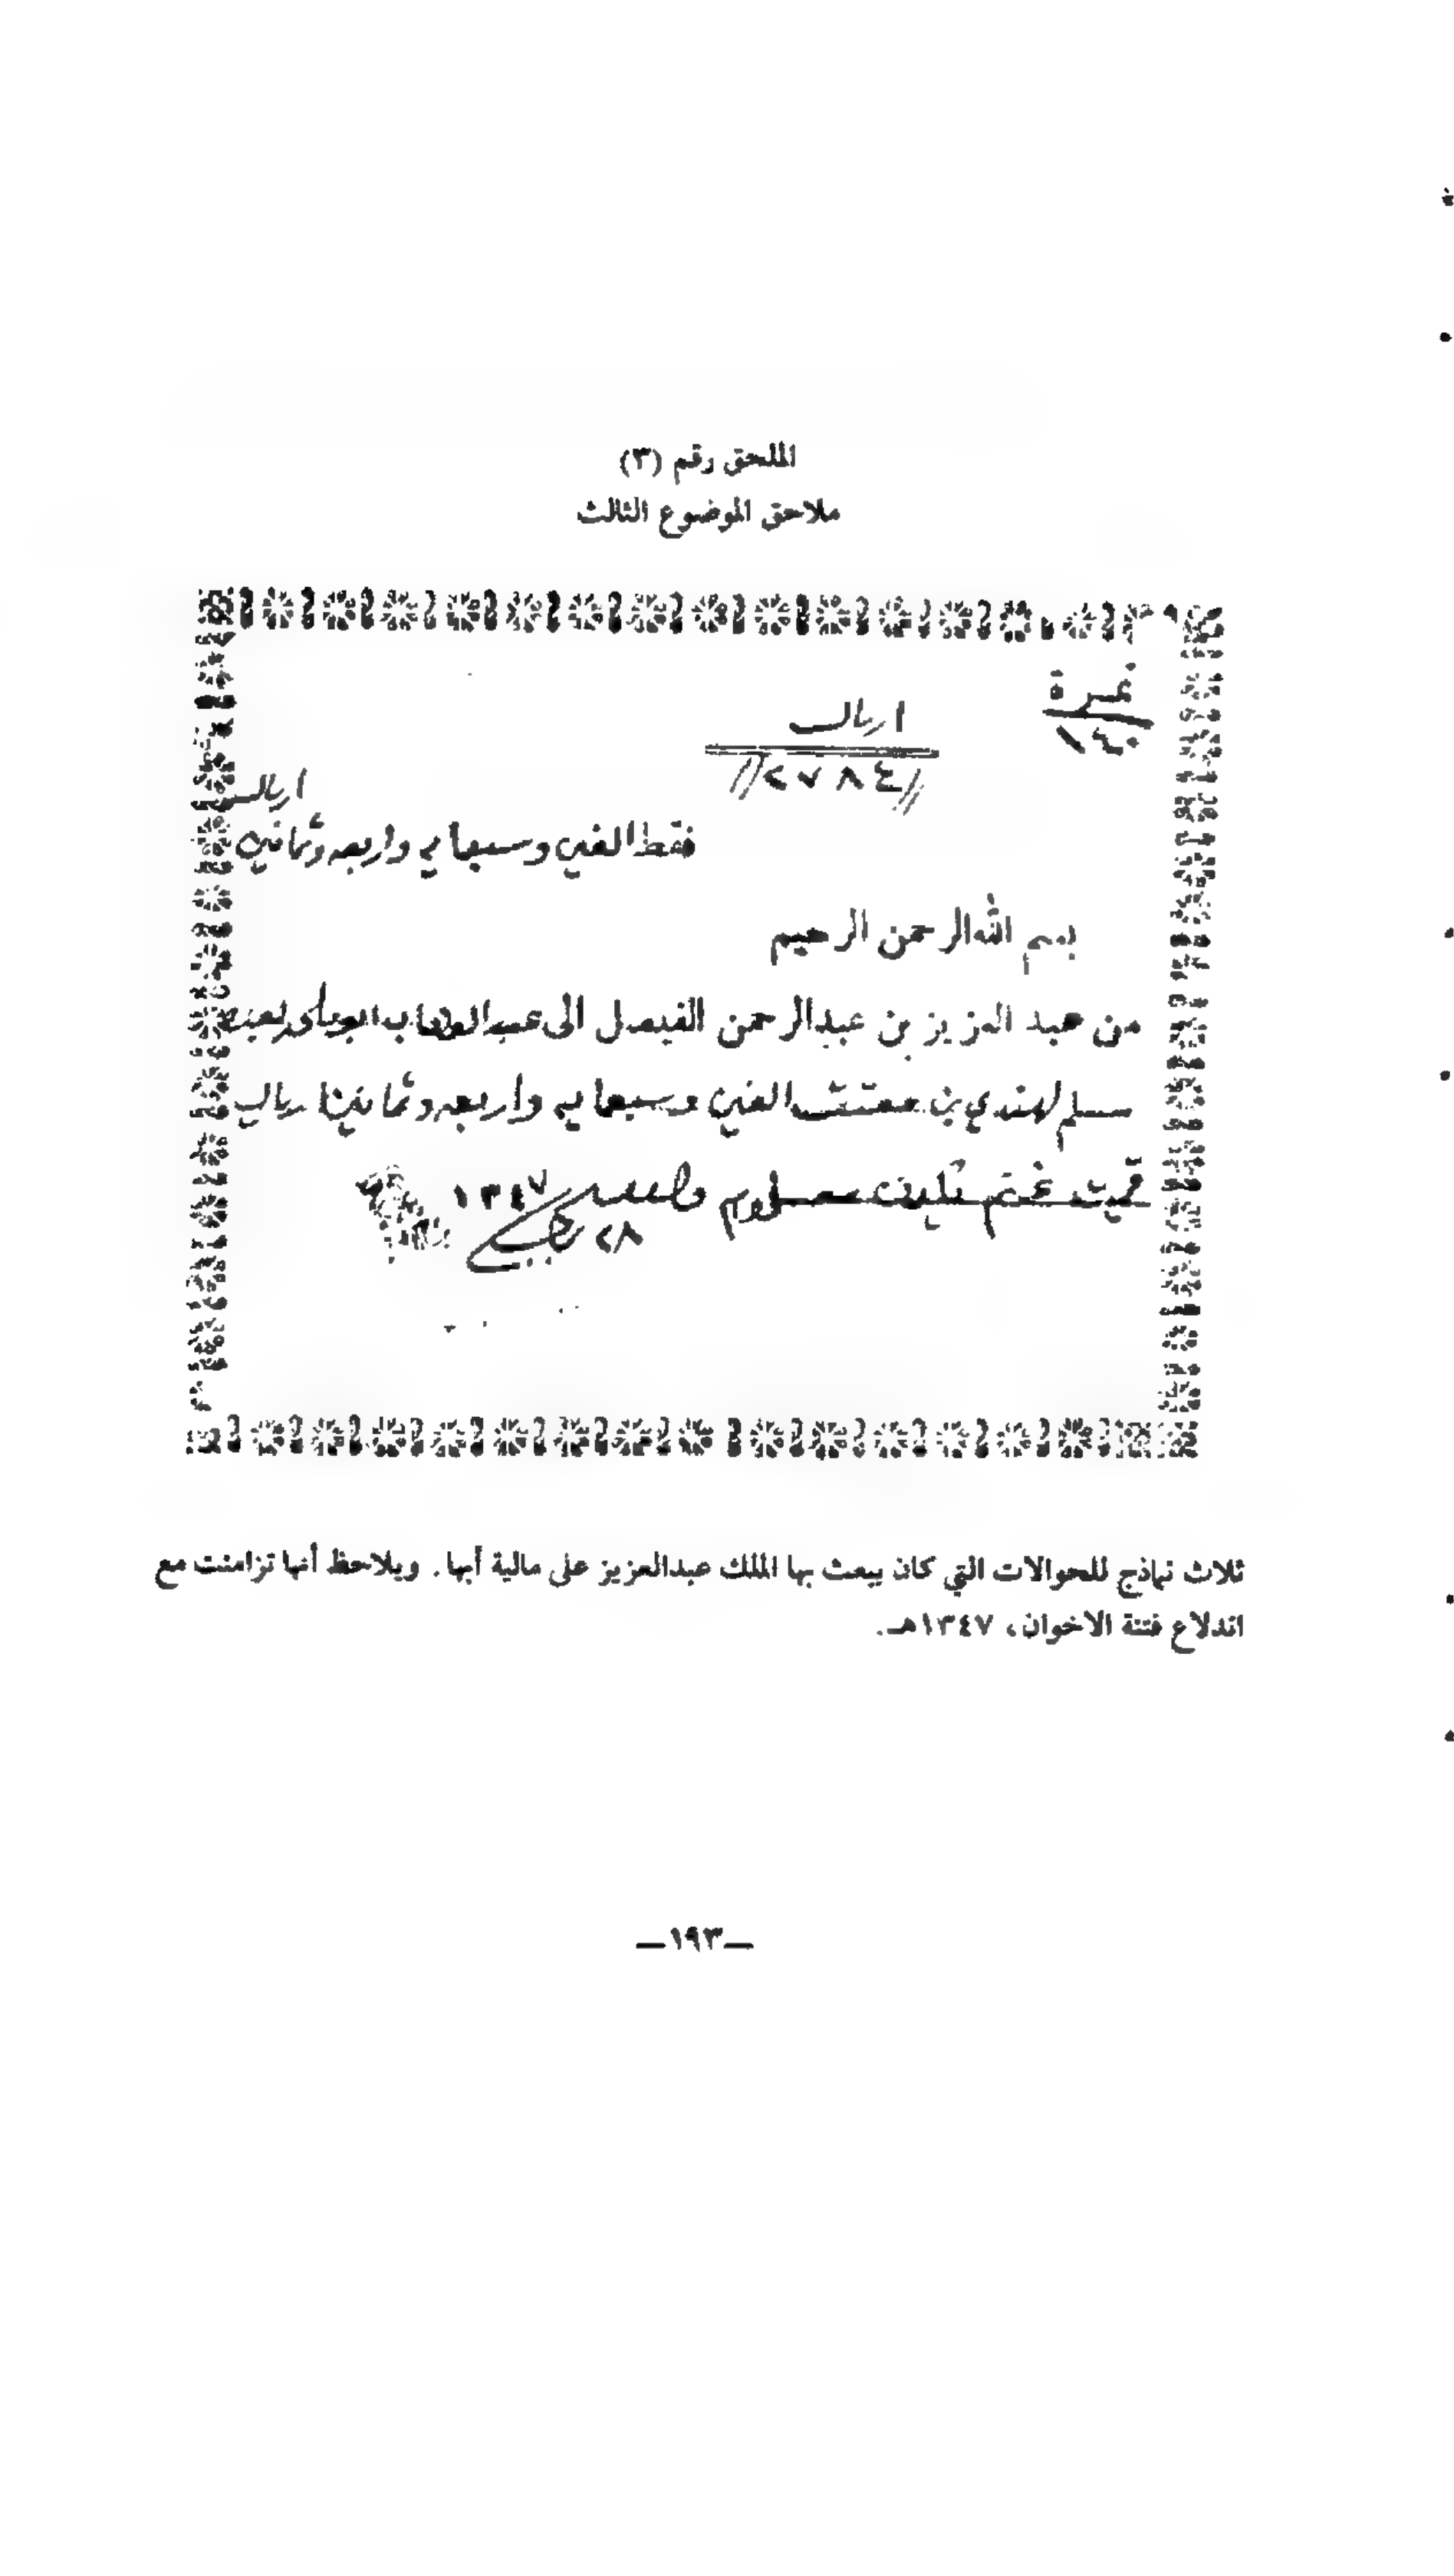 الملحق رقم (٣)
ملاحق الموضوع الثالث
نمرة
١٤٠
اريال
//٢٧٨٤//
اريال
فقط الفين وسبعمايه واربعه وثمانين
بسم الله الرحمن الرحيم
من عبد العزيز بن عبدالرحمن الفيصل الى عبد الوهاب
سلم لهندي بن الفين وسبعمايه واربعه وثمانين اريال
قيمت غنم معلوم والسلام
٢٨ ١٣٤٧
ثلاث نماذج للحوالات التي كان يبعث بها الملك عبدالعزيز على مالية أبها. ويلاحظ أنها تزامنت مع
اندلاع فتنة الاخوان، ١٣٤٧هـ.
—١٩٣—